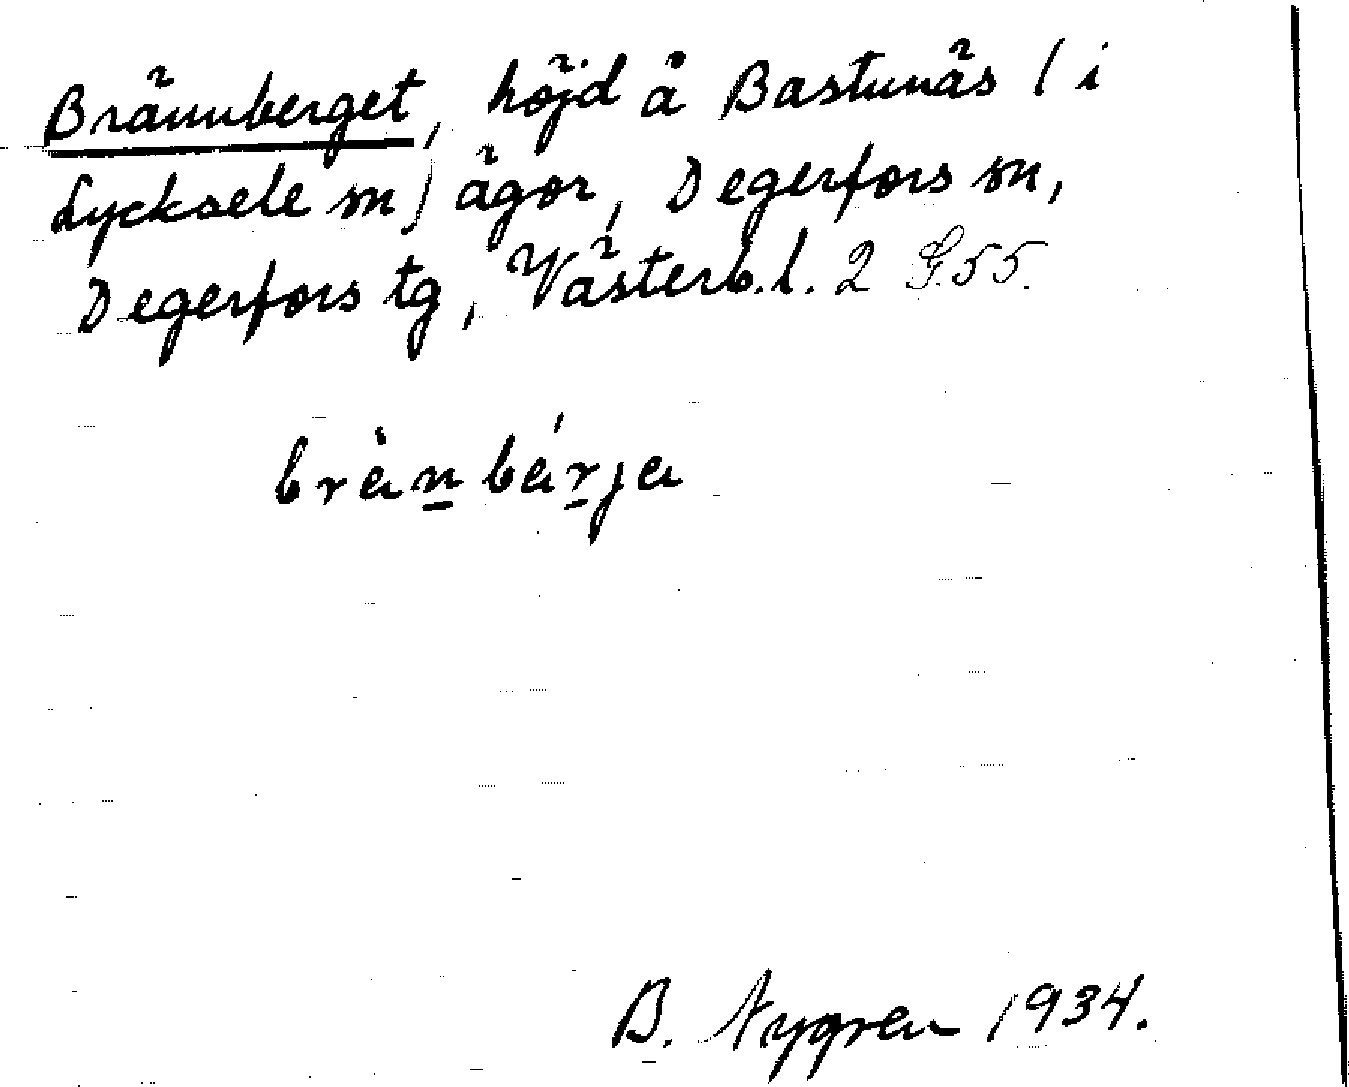 Brännberget, höjd å Bastunäs (i
Lycksele sn) ägor, Degerfors sn,
Degerfors tg, Västerb.l. 2 G.55.
brànbárja
B. Nygren 1934.